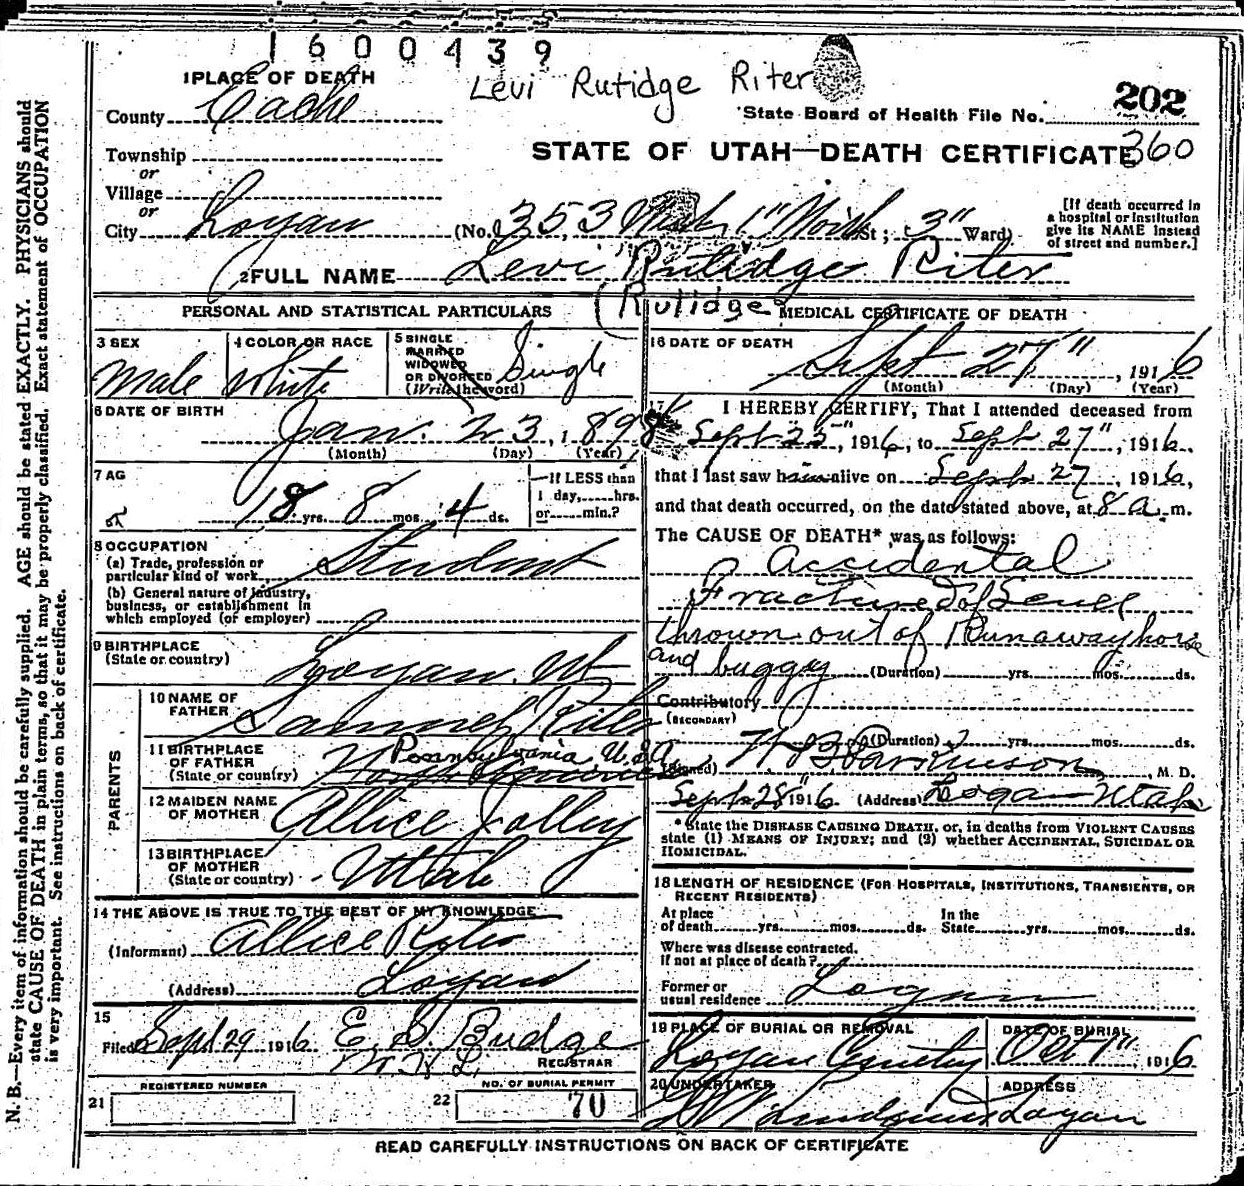 1600439
Levi Rutidge Riter
1 PLACE OF DEATH
County Cache
State Board of Health File No. 202
360
STATE OF UTAH—DEATH CERTIFICATE
Township
or
Village
or
City Logan (No. 353 West 1" North St; 3" Ward)
[If death occurred in a hospital or institution give its NAME instead of street and number.]
2 FULL NAME Levi Rutidge Riter
(Rulidge
PERSONAL AND STATISTICAL PARTICULARS
3 SEX Male
4 COLOR OR RACE White
5 SINGLE MARRIED WIDOWED OR DIVORCED (Write the word) Single
6 DATE OF BIRTH
Jan. 23, 1898
(Month) (Day) (Year)
7 AG
18 yrs. 8 mos. 4 ds.
If LESS than 1 day, hrs. or min.?
8 OCCUPATION
(a) Trade, profession or particular kind of work Student
(b) General nature of industry, business, or establishment in which employed (or employer)
9 BIRTHPLACE (State or country) Logan. Ut
PARENTS
10 NAME OF FATHER Samuel Riter
11 BIRTHPLACE OF FATHER (State or country) Pennsylvania U.S.A.
12 MAIDEN NAME OF MOTHER Allice Jolley
13 BIRTHPLACE OF MOTHER (State or country) Utah
14 THE ABOVE IS TRUE TO THE BEST OF MY KNOWLEDGE
(Informant) Allice Riter
(Address) Logan
15
Filed Sept 29 1916 E. S. Budge
REGISTRAR
REGISTERED NUMBER
21
NO. OF BURIAL PERMIT
22 70
MEDICAL CERTIFICATE OF DEATH
16 DATE OF DEATH
Sept 27", 1916
(Month) (Day) (Year)
17 I HEREBY CERTIFY, That I attended deceased from
Sept 25", 1916, to Sept 27", 1916.
that I last saw him alive on Sept 27, 1916,
and that death occurred, on the date stated above, at 8 a.m.
The CAUSE OF DEATH* was as follows:
Accidental
Fracture of
thrown out of Runaway horse
and buggy (Duration) yrs. mos. ds.
Contributory
(SECONDARY)
(Duration) yrs. mos. ds.
(Signed) , M. D.
Sept 28" 1916 (Address) Logan Utah
* State the DISEASE CAUSING DEATH, or, in deaths from VIOLENT CAUSES
state (1) MEANS OF INJURY; and (2) whether ACCIDENTAL, SUICIDAL OR
HOMICIDAL.
18 LENGTH OF RESIDENCE (FOR HOSPITALS, INSTITUTIONS, TRANSIENTS, OR
RECENT RESIDENTS)
At place of death yrs. mos. ds. In the State yrs. mos. ds.
Where was disease contracted,
if not at place of death?
Former or usual residence Logan
19 PLACE OF BURIAL OR REMOVAL Logan Cemetery
DATE OF BURIAL Oct 1", 1916
20 UNDERTAKER
ADDRESS Logan
READ CAREFULLY INSTRUCTIONS ON BACK OF CERTIFICATE
N. B.—Every item of information should be carefully supplied. AGE should be stated EXACTLY. PHYSICIANS should
state CAUSE OF DEATH in plain terms, so that it may be properly classified. Exact statement of OCCUPATION
is very important. See instructions on back of certificate.